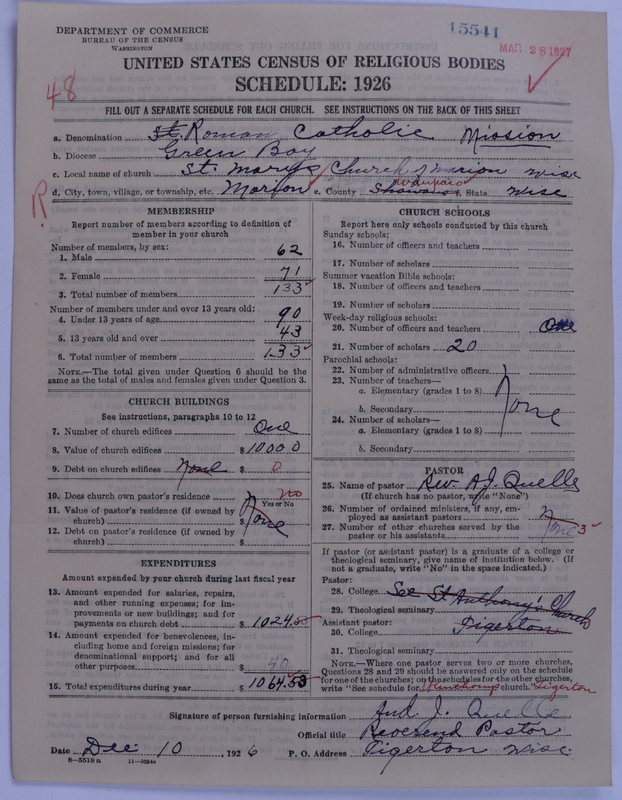 DEPARTMENT OF COMMERCE
BUREAU OF THE CENSUS
WASHINGTON
15541
MAR 28 1927
UNITED STATES CENSUS OF RELIGIOUS BODIES
SCHEDULE: 1926
48
FILL OUT A SEPARATE SCHEDULE FOR EACH CHURCH. SEE INSTRUCTIONS ON THE BACK OF THIS SHEET
a. Denomination St. Roman Catholic Mission
b. Diocese Green Bay
c. Local name of church St. Marys Church of Marion Wisc
R
d. City, town, village, or township, etc. Marion e. County Shawano Waupaca f. State Wisc
MEMBERSHIP
Report number of members according to definition of
member in your church
Number of members, by sex:
1. Male 62
2. Female 71
3. Total number of members 133
Number of members under and over 13 years old:
4. Under 13 years of age 90
5. 13 years old and over 43
6. Total number of members 133
NOTE.—The total given under Question 6 should be
the same as the total of males and females given under Question 3.
CHURCH BUILDINGS
See instructions, paragraphs 10 to 12
7. Number of church edifices One
8. Value of church edifices $ 10000
9. Debt on church edifices None $ 0
10. Does church own pastor's residence No
Yes or No
11. Value of pastor's residence (if owned by
church) $ None
12. Debt on pastor's residence (if owned by
church) $
EXPENDITURES
Amount expended by your church during last fiscal year
13. Amount expended for salaries, repairs,
and other running expenses; for im-
provements or new buildings; and for
payments on church debt $ 1024.53
14. Amount expended for benevolences, in-
cluding home and foreign missions; for
denominational support; and for all
other purposes $ 40
15. Total expenditures during year $ 1064.53
CHURCH SCHOOLS
Report here only schools conducted by this church
Sunday schools:
16. Number of officers and teachers
17. Number of scholars
Summer vacation Bible schools:
18. Number of officers and teachers
19. Number of scholars
Week-day religious schools:
20. Number of officers and teachers One
21. Number of scholars 20
Parochial schools:
22. Number of administrative officers
23. Number of teachers—
a. Elementary (grades 1 to 8)
b. Secondary None
24. Number of scholars—
a. Elementary (grades 1 to 8)
b. Secondary
PASTOR
25. Name of pastor Rev. A. J. Quelle
(If church has no pastor, write "None")
26. Number of ordained ministers, if any, em-
ployed as assistant pastors None
27. Number of other churches served by the
pastor or his assistants 3
If pastor (or assistant pastor) is a graduate of a college or
theological seminary, give name of institution below. (If
not a graduate, write "No" in the space indicated.)
Pastor:
28. College See St Anthony's Church
29. Theological seminary
Assistant pastor: Tigerton
30. College
31. Theological seminary
NOTE.—Where one pastor serves two or more churches,
Questions 28 and 29 should be answered only on the schedule
for one of the churches; on the schedules for the other churches,
write "See schedule for St Anthony church." Tigerton
Signature of person furnishing information And J. Quelle
Official title Reverend Pastor
Date Dec 10, 1926 P. O. Address Tigerton Wisc
8—5518 a